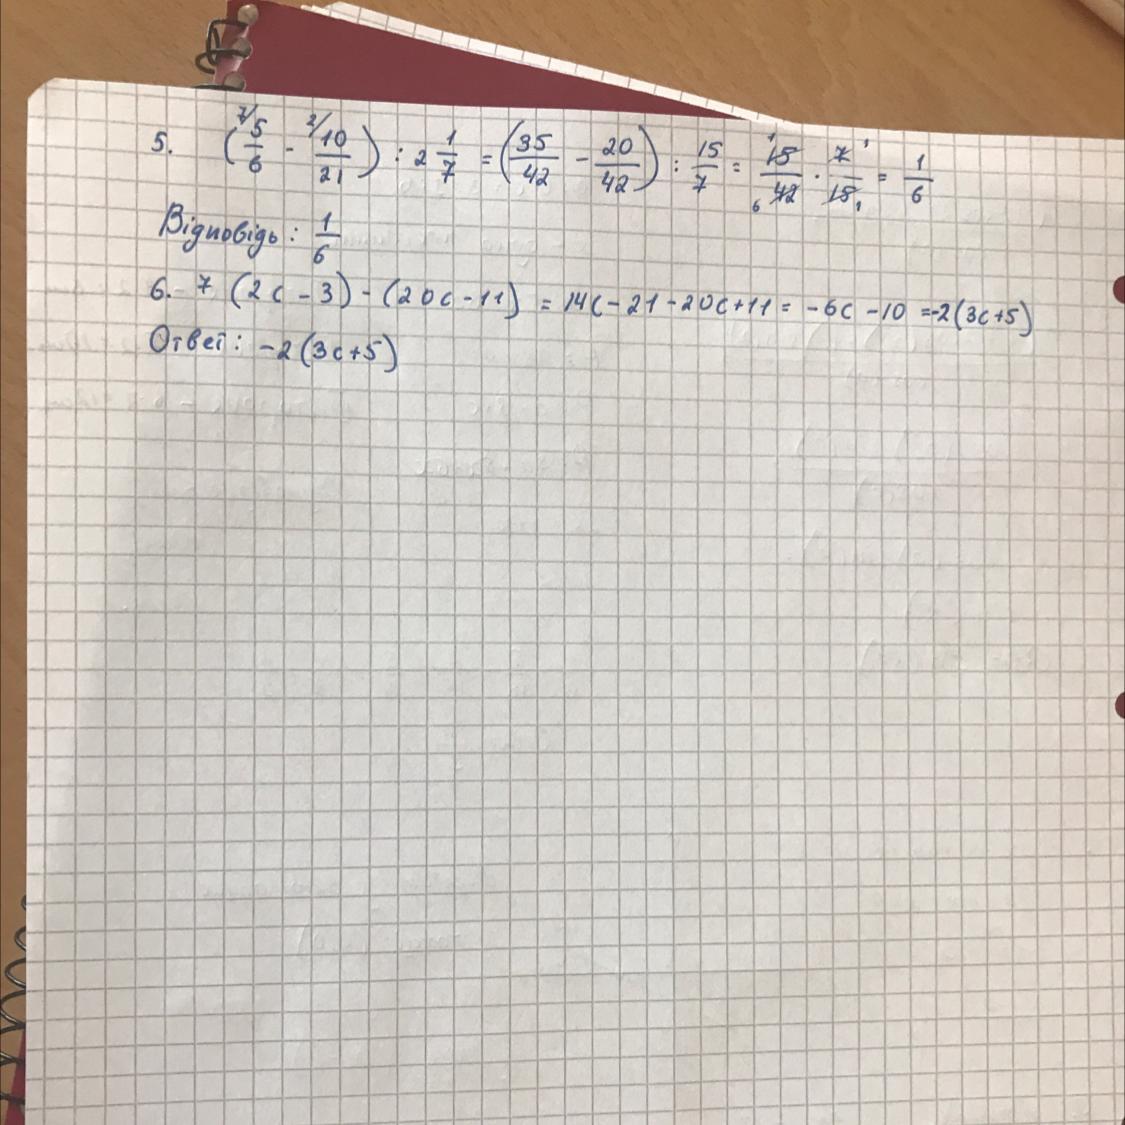 5. (⁷⁄5/6 - ²⁄10/21) : 2 1/7 = (35/42 - 20/42) : 15/7 = 15/42 · 7/15 = 1/6
Відповідь: 1/6
6. 7 (2c - 3) - (20c - 11) = 14c - 21 - 20c + 11 = -6c - 10 = -2(3c+5)
Ответ: -2(3c+5)